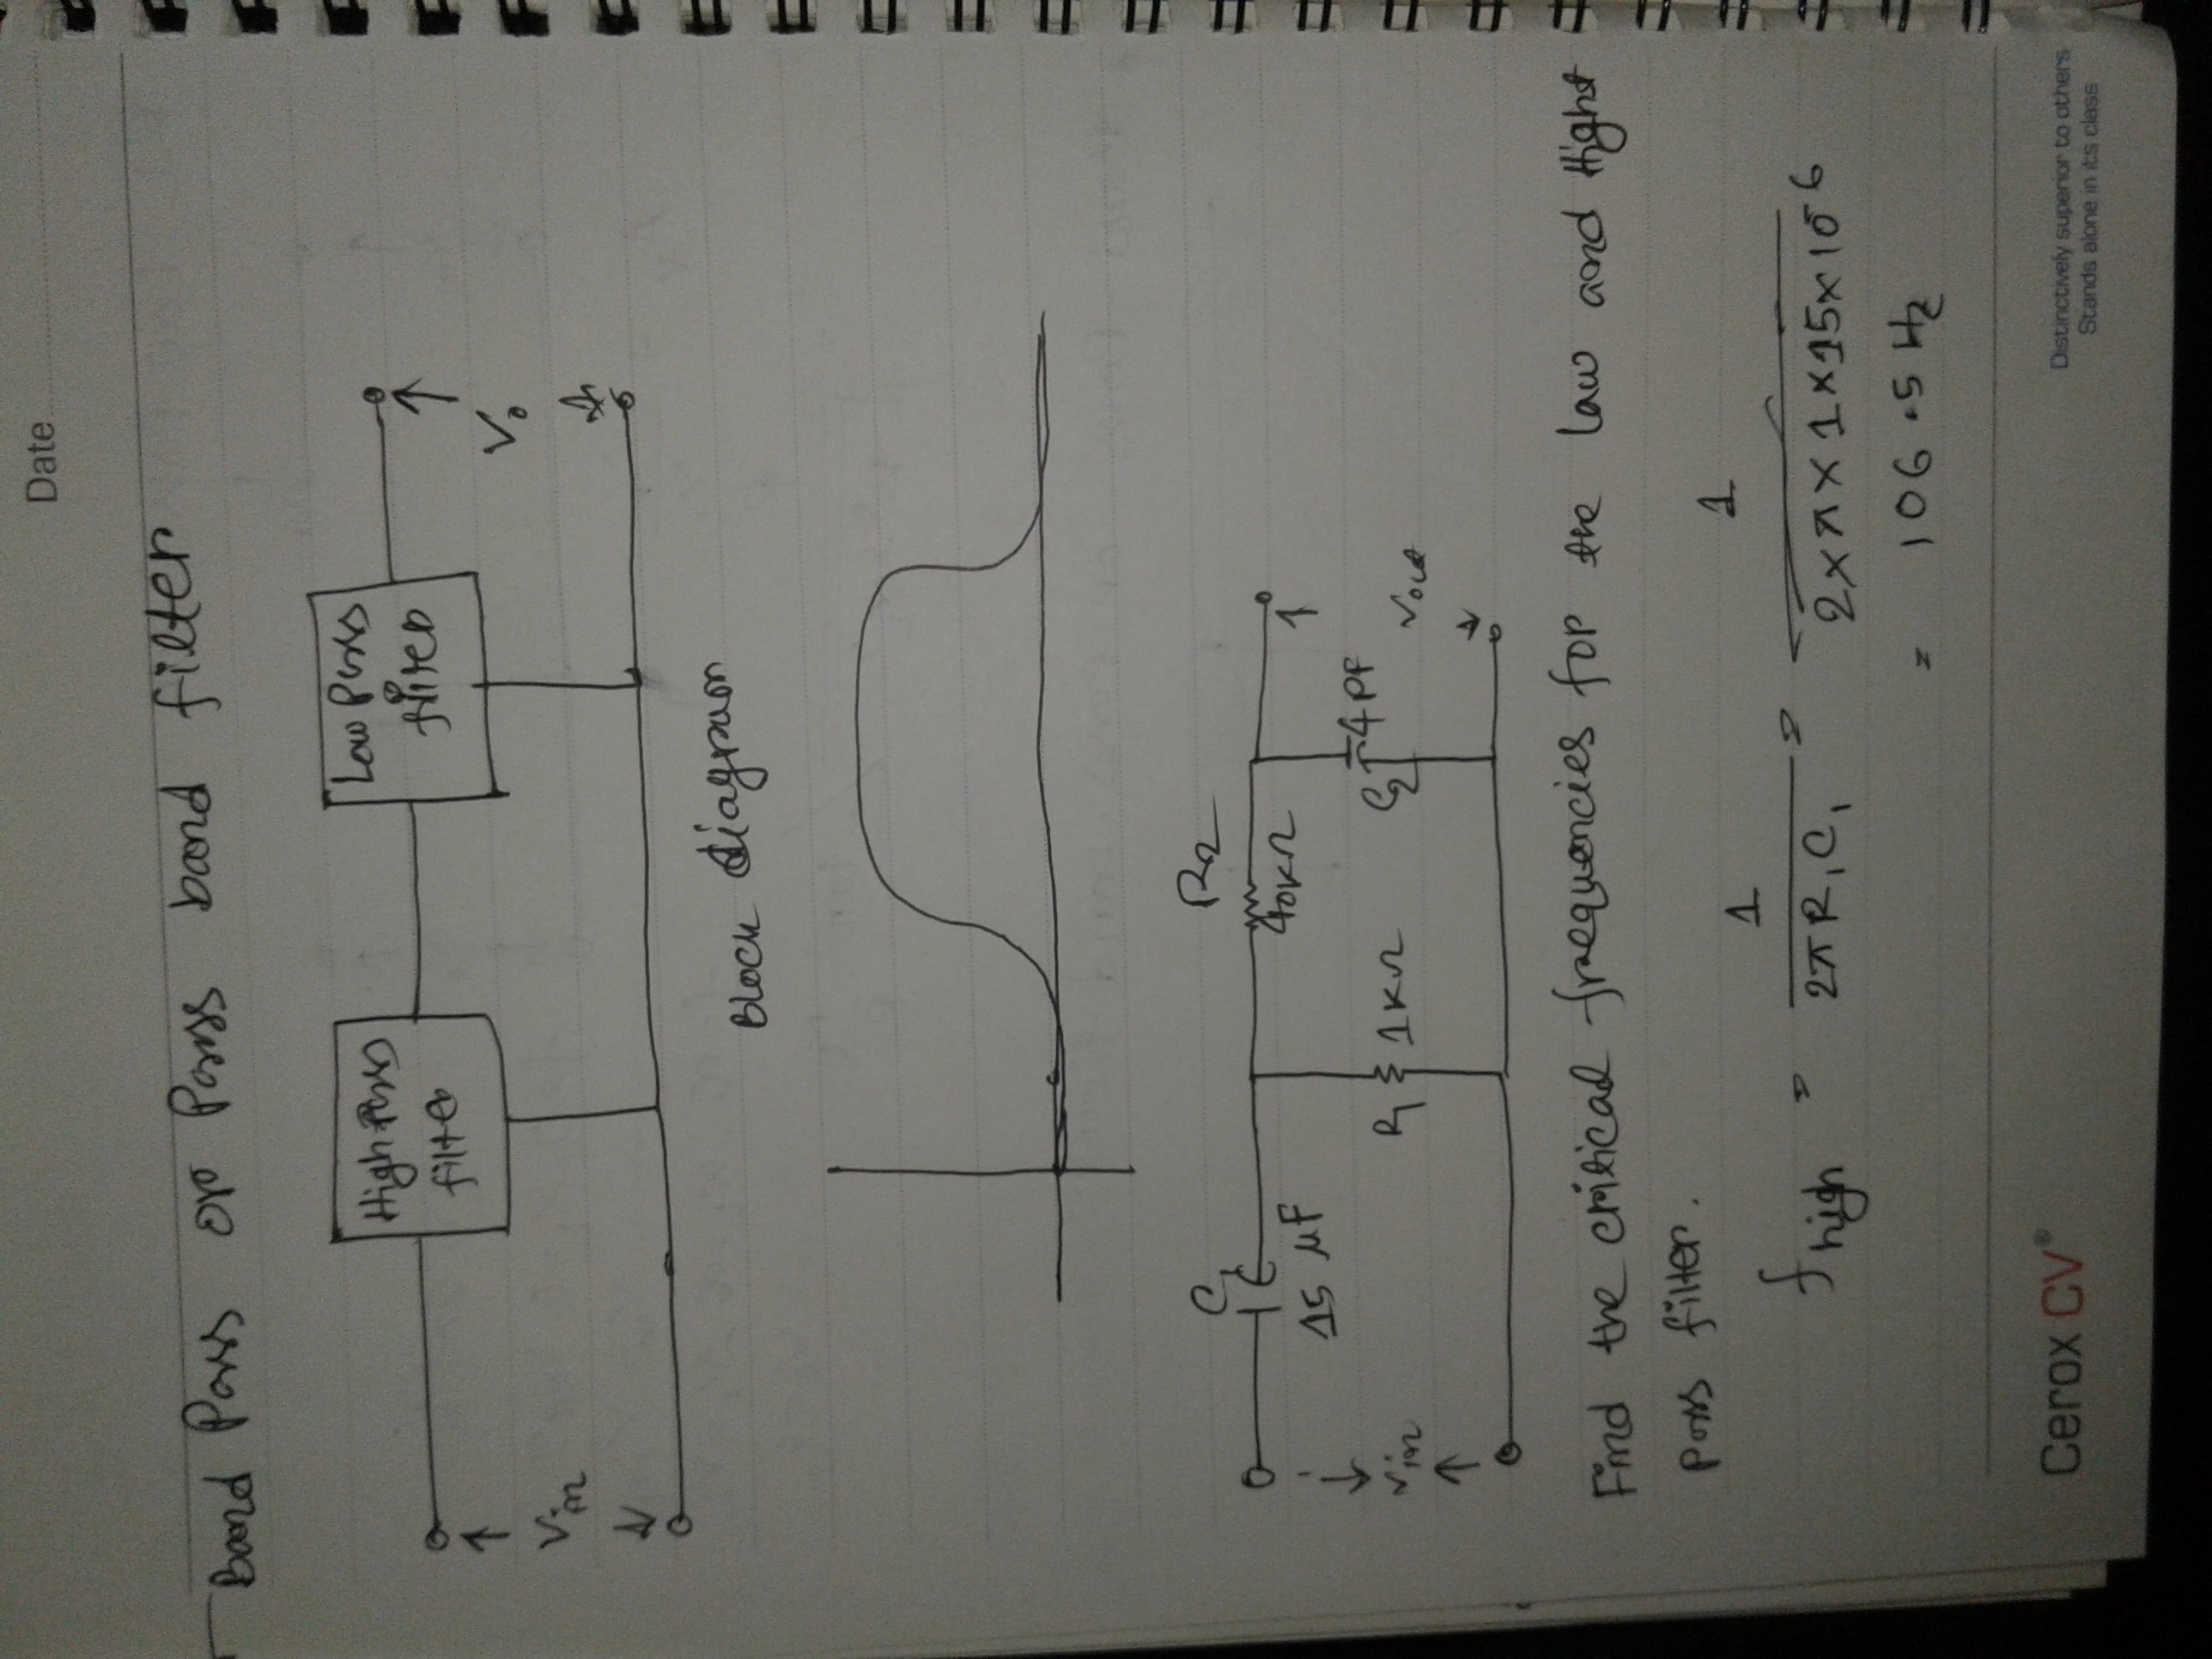 Date
Band Pass or Pass band filter
High Pass
filter
Low Pass
filter
Vin
Vo
Block diagram
C1
15 μF
R2
40KΩ
R1 1KΩ
C2 4 PF
Vin
Vout
Find the critical frequencies for the law and Highst
pass filter.
f high = 1 / 2π R1 C1 = 1 / 2×π×1×15×10-6
= 106.5 Hz
Cerox CV®
Distinctively superior to others
Stands alone in its class